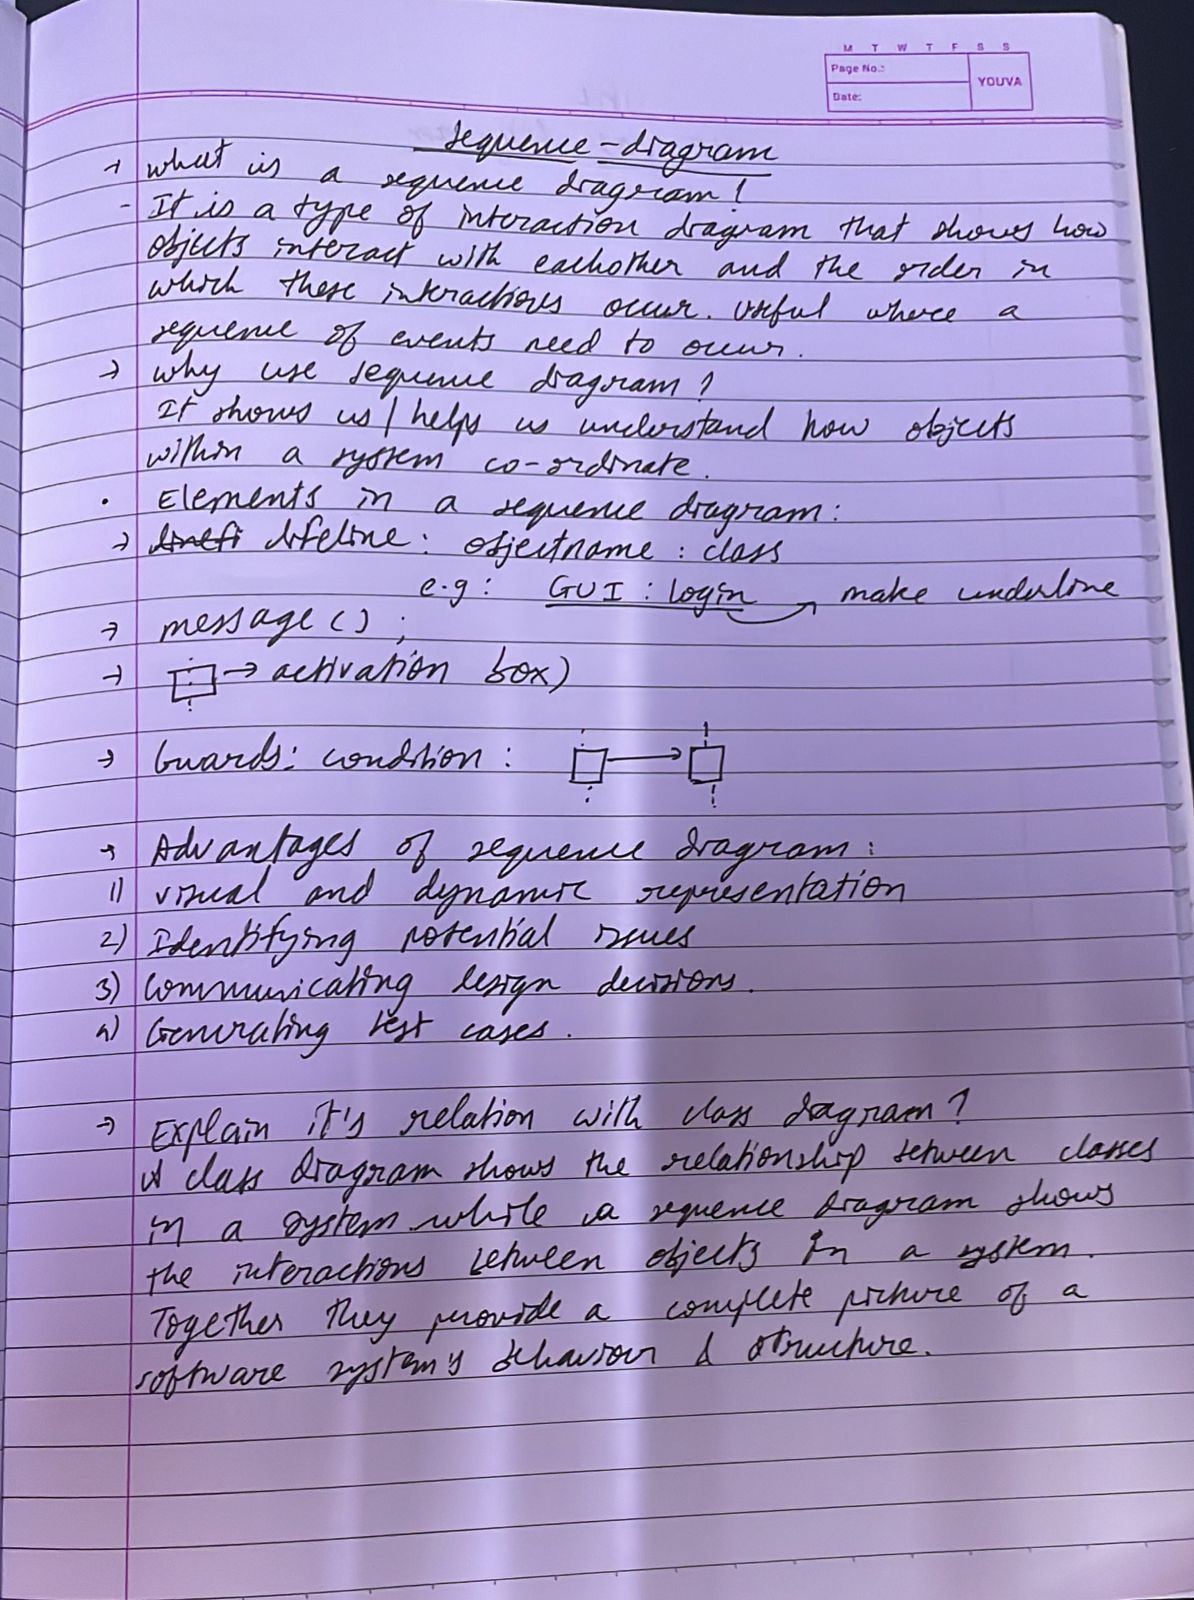 M T W T F S S
Page No.:
YOUVA
Date:
Sequence-diagram
→ what is a sequence diagram?
- It is a type of interaction diagram that shows how
objects interact with eachother and the order in
which these interactions occur. Useful where a
sequence of events need to occur.
→ why use sequence diagram?
It shows us / helps us understand how objects
within a system co-ordinate.
• Elements in a sequence diagram:
→ lifeline: objectname : class
e.g: GUI : login → make underline
→ message();
→ → activation box)
→ Guards: condition :
→ Advantages of sequence diagram:
1) visual and dynamic representation
2) Identifying potential issues
3) Communicating design decisions.
4) Generating test cases.
→ Explain it's relation with class diagram?
A class diagram shows the relationship between classes
in a system while a sequence diagram shows
the interactions between objects in a system.
Together they provide a complete picture of a
software system's behaviour & structure.